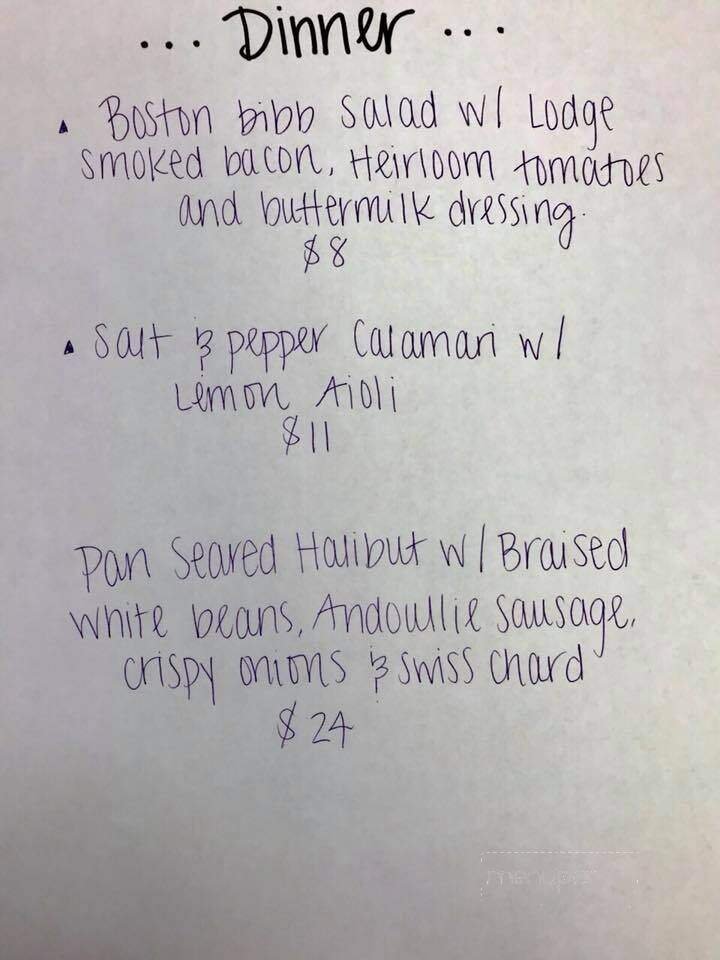 ... Dinner ...
▲ Boston bibb salad w/ Lodge
smoked bacon, Heirloom tomatoes
and buttermilk dressing.
$8
▲ Salt & pepper Calamari w/
Lemon Aioli
$11
Pan Seared Halibut w/ Braised
white beans, Andoullie sausage,
crispy onions & swiss chard
$24